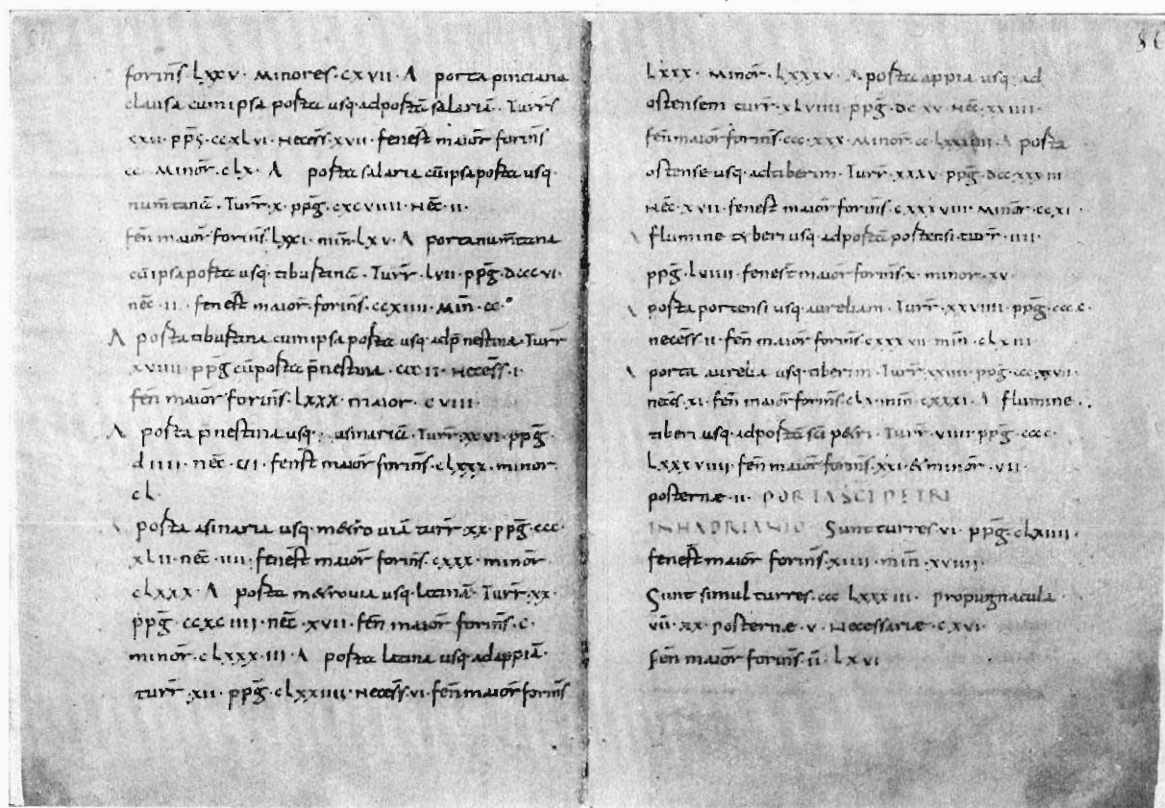 forinsͨ lxxv · minores · cxvii · A porta pinciana
clausa cum ipsa porta usq· ad portā salariā · Turrs̄
xxii · ppḡ · ccxlvi · necess̄ · xvii · fenest̄ maior̄ forins̄
cc · minor̄ · clx · A porta salaria cū ipsa porta usq·
num̄tanā · Turr̄ · x · ppḡ · cxcviiii · nec̄ · ii ·
fen̄ maior̄ forins̄ · lxxi · min̄ · lxv · A porta num̄tana
cū ipsa porta usq· tiburtinā · Turr̄ · lvii · ppḡ · dcccvi ·
nec̄ · ii · fenest̄ maior̄ · forins̄ · ccxiiii · min̄ · cc ·
A porta tiburtina cum ipsa porta usq· ad p̄nestina · Turr̄
xviiii · ppḡ cū porta p̄nestina · necess̄ · i ·
fen̄ maior̄ forins̄ · lxxx · maior · cviii ·
A porta p̄nestina usq· asinariā · Turr̄ · xxvi · ppḡ ·
diiii · nec̄ · vi · fenest̄ maior̄ forins̄ · clxxx · minor ·
cl ·
A porta asinaria usq· metro viā turr̄ · xx · ppḡ · ccc ·
xlii · nec̄ · iiii · fenest̄ maior̄ forins̄ · cxxx · minor̄ ·
clxxx · A porta metrovia usq· latinā · Turr̄ · xx ·
ppḡ · ccxciiii · nec̄ · xvii · fen̄ maior̄ forins̄ · c ·
minor̄ · clxxx · iii · A porta latina usq· ad appiā ·
turr̄ · xii · ppḡ · clxxiiii · necess̄ · vi · fen̄ maior̄ forins̄
lxxx · minor̄ · lxxxv · A porta appia usq· ad
ostensem turr̄ · xlviiii · ppḡ · dcxv · nec̄ · xxiiii ·
fen̄ maior̄ forins̄ · ccc · xxx · minor̄ · A porta
ostense usq· ad tiberim · Turr̄ · xxxv · ppḡ · dccxxxiii
nec̄ · xvii · fenest̄ maior̄ forins̄ · cxxxviii · minor̄ · ccxi ·
A flumine tyberi usq· ad portā portensi · turr̄ · iiii ·
ppḡ · lviiii · fenest̄ maior̄ forins̄ · x · minor · xv ·
A porta portensi usq· aureliam · Turr̄ · xxviiii · ppḡ · cccc ·
necess̄ · ii · fen̄ maior̄ forins̄ · cxxxvii · min̄ · clxiii ·
A porta aurelia usq· tiberim · Turr̄ · xxiiii · ppḡ · cccxxvii ·
necēs · xi · fen̄ maior̄ forins̄ · clx · min̄ · cxxxi · A flumine
tiberi usq· ad portā sc̄i petri · Turr̄ · viiii · ppḡ · cccc ·
lxxxviiii · fen̄ maior̄ forins̄ · xxi · & minor̄ · vii ·
posternæ · ii · PORTA SC̄I PETRI
IN HADRIANIO Sunt turres · vi · ppḡ · clxiiii ·
fenest̄ maior̄ forins̄ · xiiii · min̄ · xviiii ·
Sunt simul turres · ccclxxxiii · propugnacula
vīī · xx · posternæ · v · necessariæ · cxvi ·
fen̄ maior̄ forins̄ · īī · lxvi